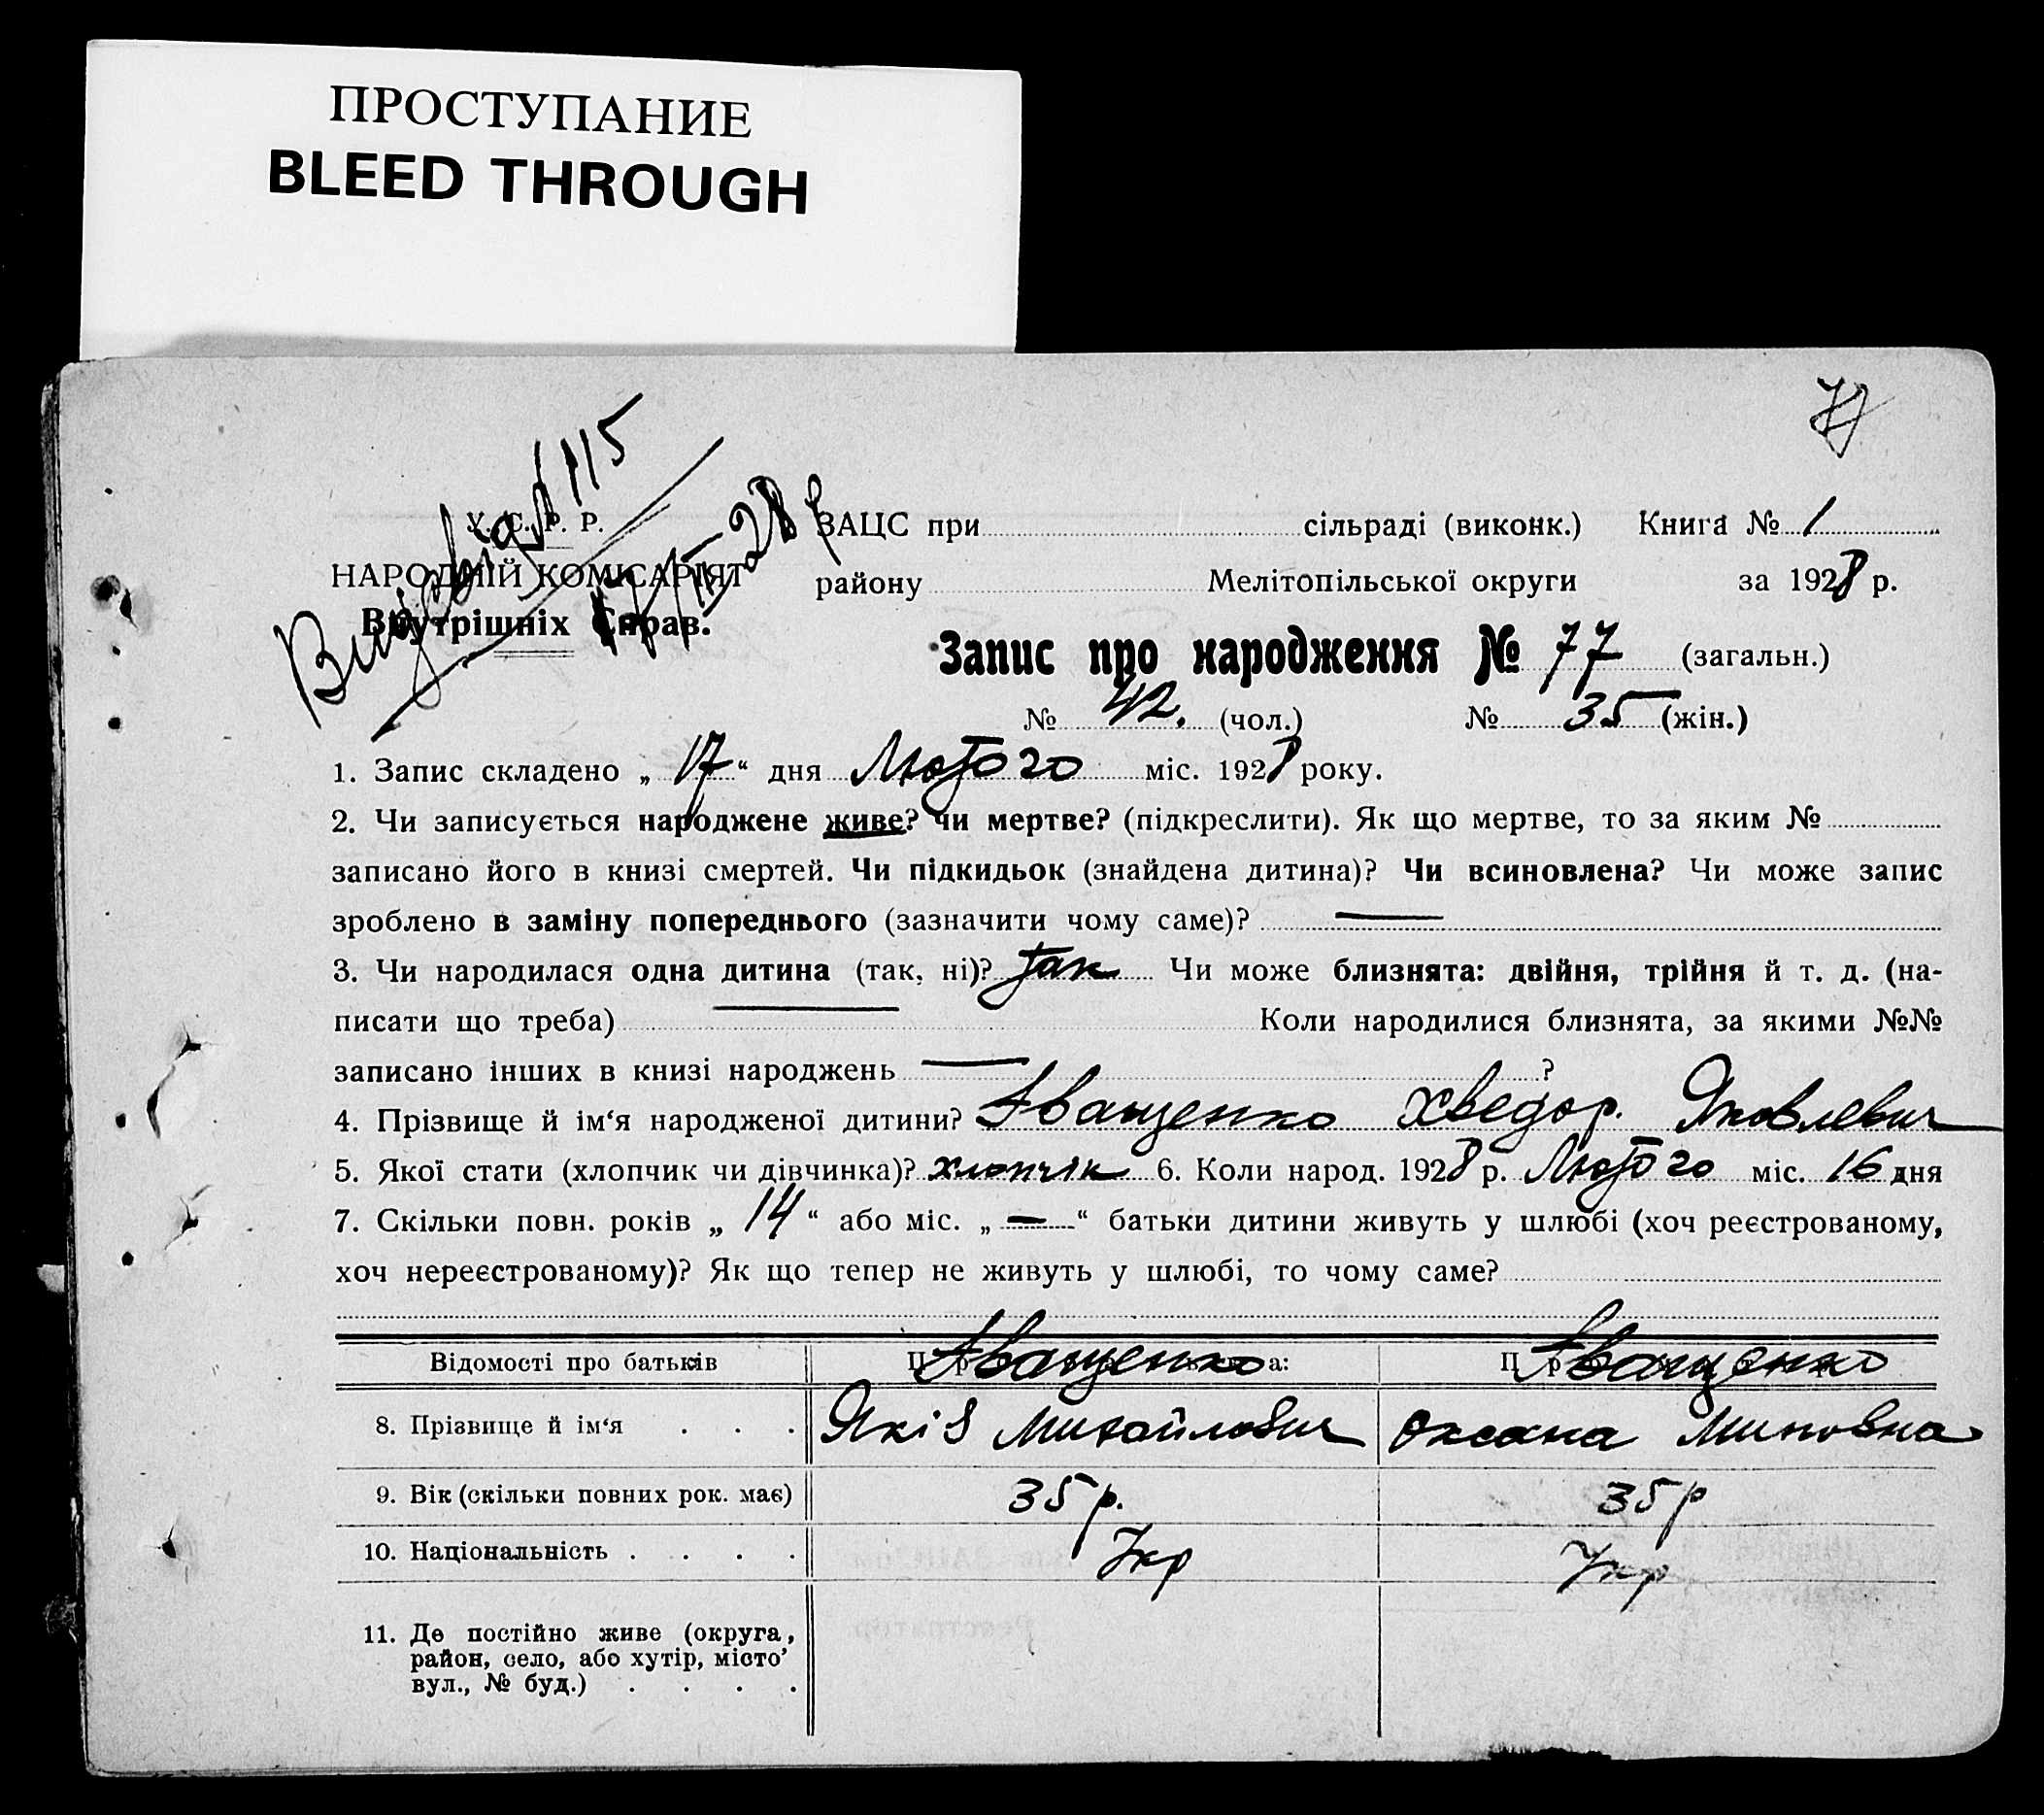 ПРОСТУПАНИЕ
BLEED THROUGH
77
115
У. С. Р. Р.
НАРОДНІЙ КОМІСАРІЯТ
Внутрішніх Справ.
17/II-28 р
ЗАЦС при сільраді (виконк.) Книга № 1
району Мелітопільської округи за 1928 р.
Запис про народження № 77 (загальн.)
№ 42. (чол.) № 35 (жін.)
1. Запис складено „ 17 “ дня Лютого міс. 1928 року.
2. Чи записується народжене живе? чи мертве? (підкреслити). Як що мертве, то за яким №
записано його в книзі смертей. Чи підкидьок (знайдена дитина)? Чи всиновлена? Чи може запис
зроблено в заміну попереднього (зазначити чому саме)? —
3. Чи народилася одна дитина (так, ні)? так Чи може близнята: двійня, трійня й т. д. (на-
писати що треба) — Коли народилися близнята, за якими №№
записано інших в книзі народжень — ?
4. Прізвище й ім‘я народженої дитини? Іващенко Хведор. Яковлевич
5. Якої стати (хлопчик чи дівчинка)? хлопчік 6. Коли народ. 1928 р. Лютого міс. 16 дня
7. Скільки повн. років „ 14 “ або міс. „ — “ батьки дитини живуть у шлюбі (хоч реєстрованому,
хоч нереєстрованому)? Як що тепер не живуть у шлюбі, то чому саме?
Відомості про батьків Іващенко Іващенко
8. Прізвище й ім‘я . . . Яків Михайлович Оксана Миновна
9. Вік (скільки повних рок. має) 35 р. 35 р
10. Національність . . . . Укр Укр
11. Де постійно живе (округа,
район, село, або хутір, місто’
вул., № буд.) . . . .